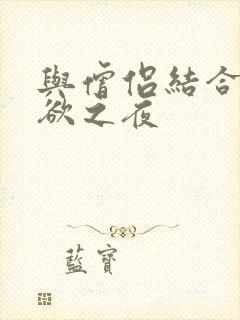 與僧侶結合
欲之夜
藍寶